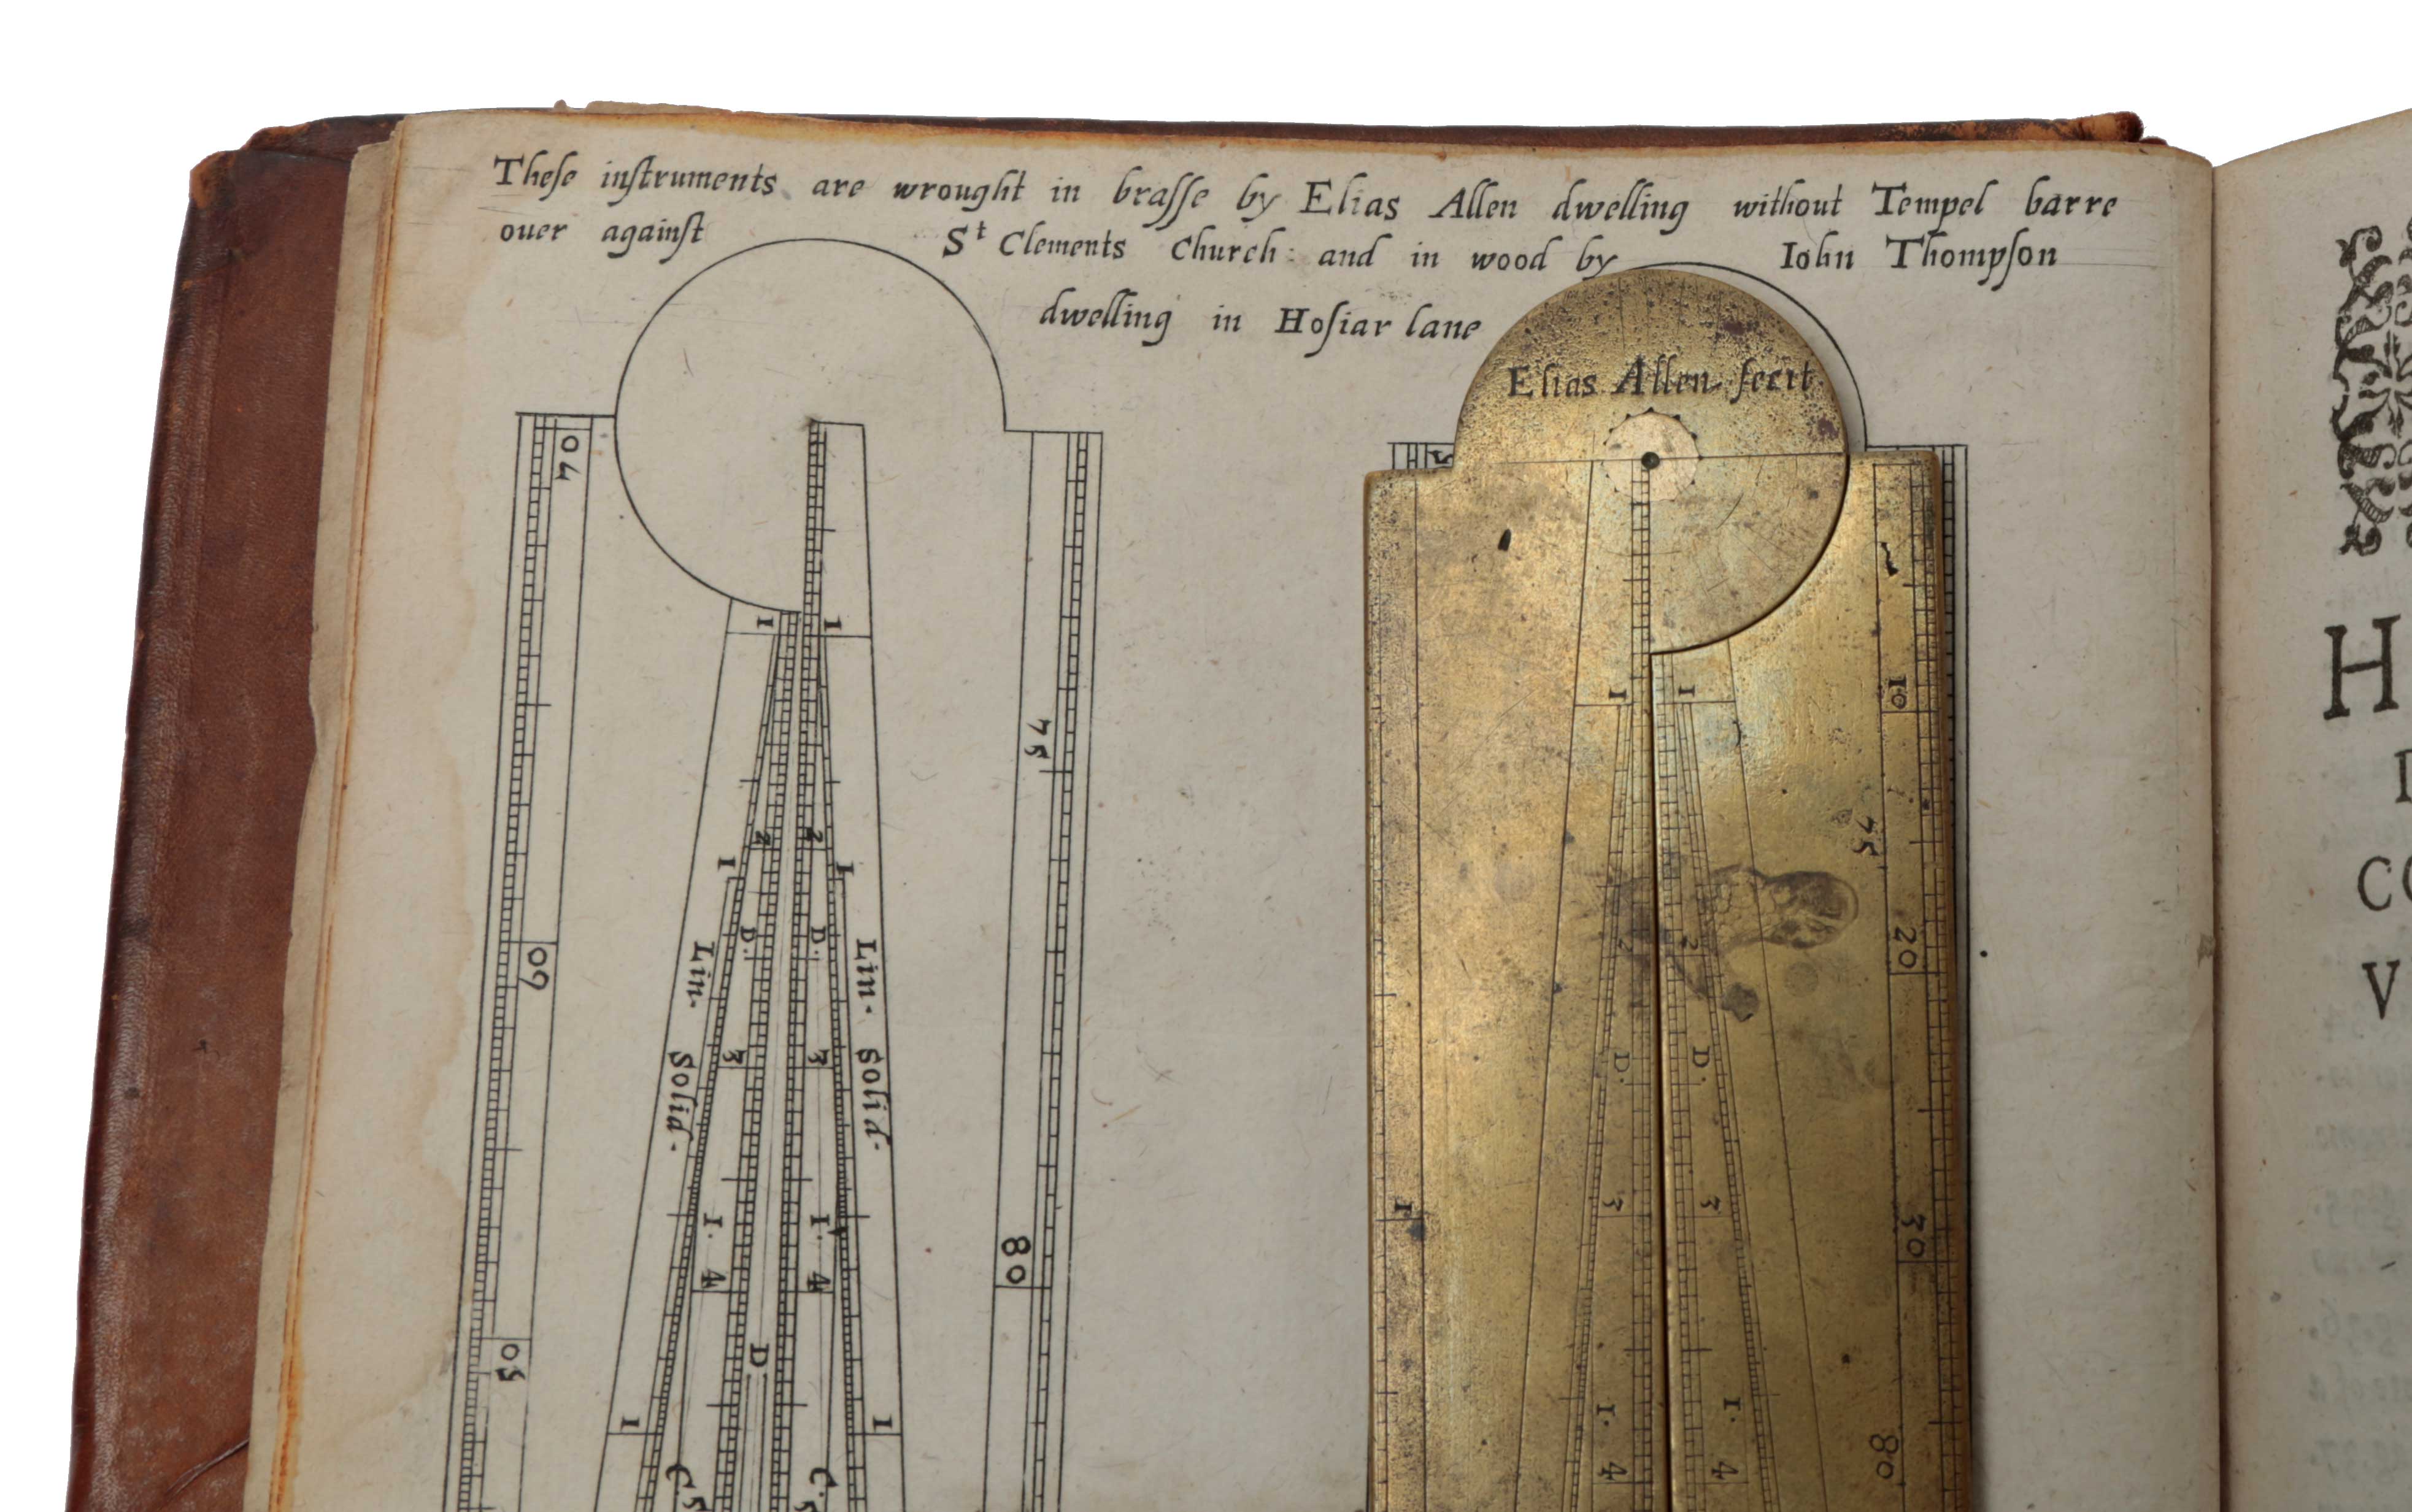 Theſe inſtruments are wrought in braſſe by Elias Allen dwelling without Tempel barre
ouer againſt St Clements Church: and in wood by Iohn Thompſon
dwelling in Hoſiar lane
Elias Allen fecit
70
60
50
1 1
2 2
1 1
D. D.
Lin. Solid.
Lin. Solid.
3 3
I. I.
4 4
D
1 1
C. C.
5 5
75
80
1 1
2 2
D. D.
3 3
I. I.
4 4
1
10
20
30
75
80
H
CO
V